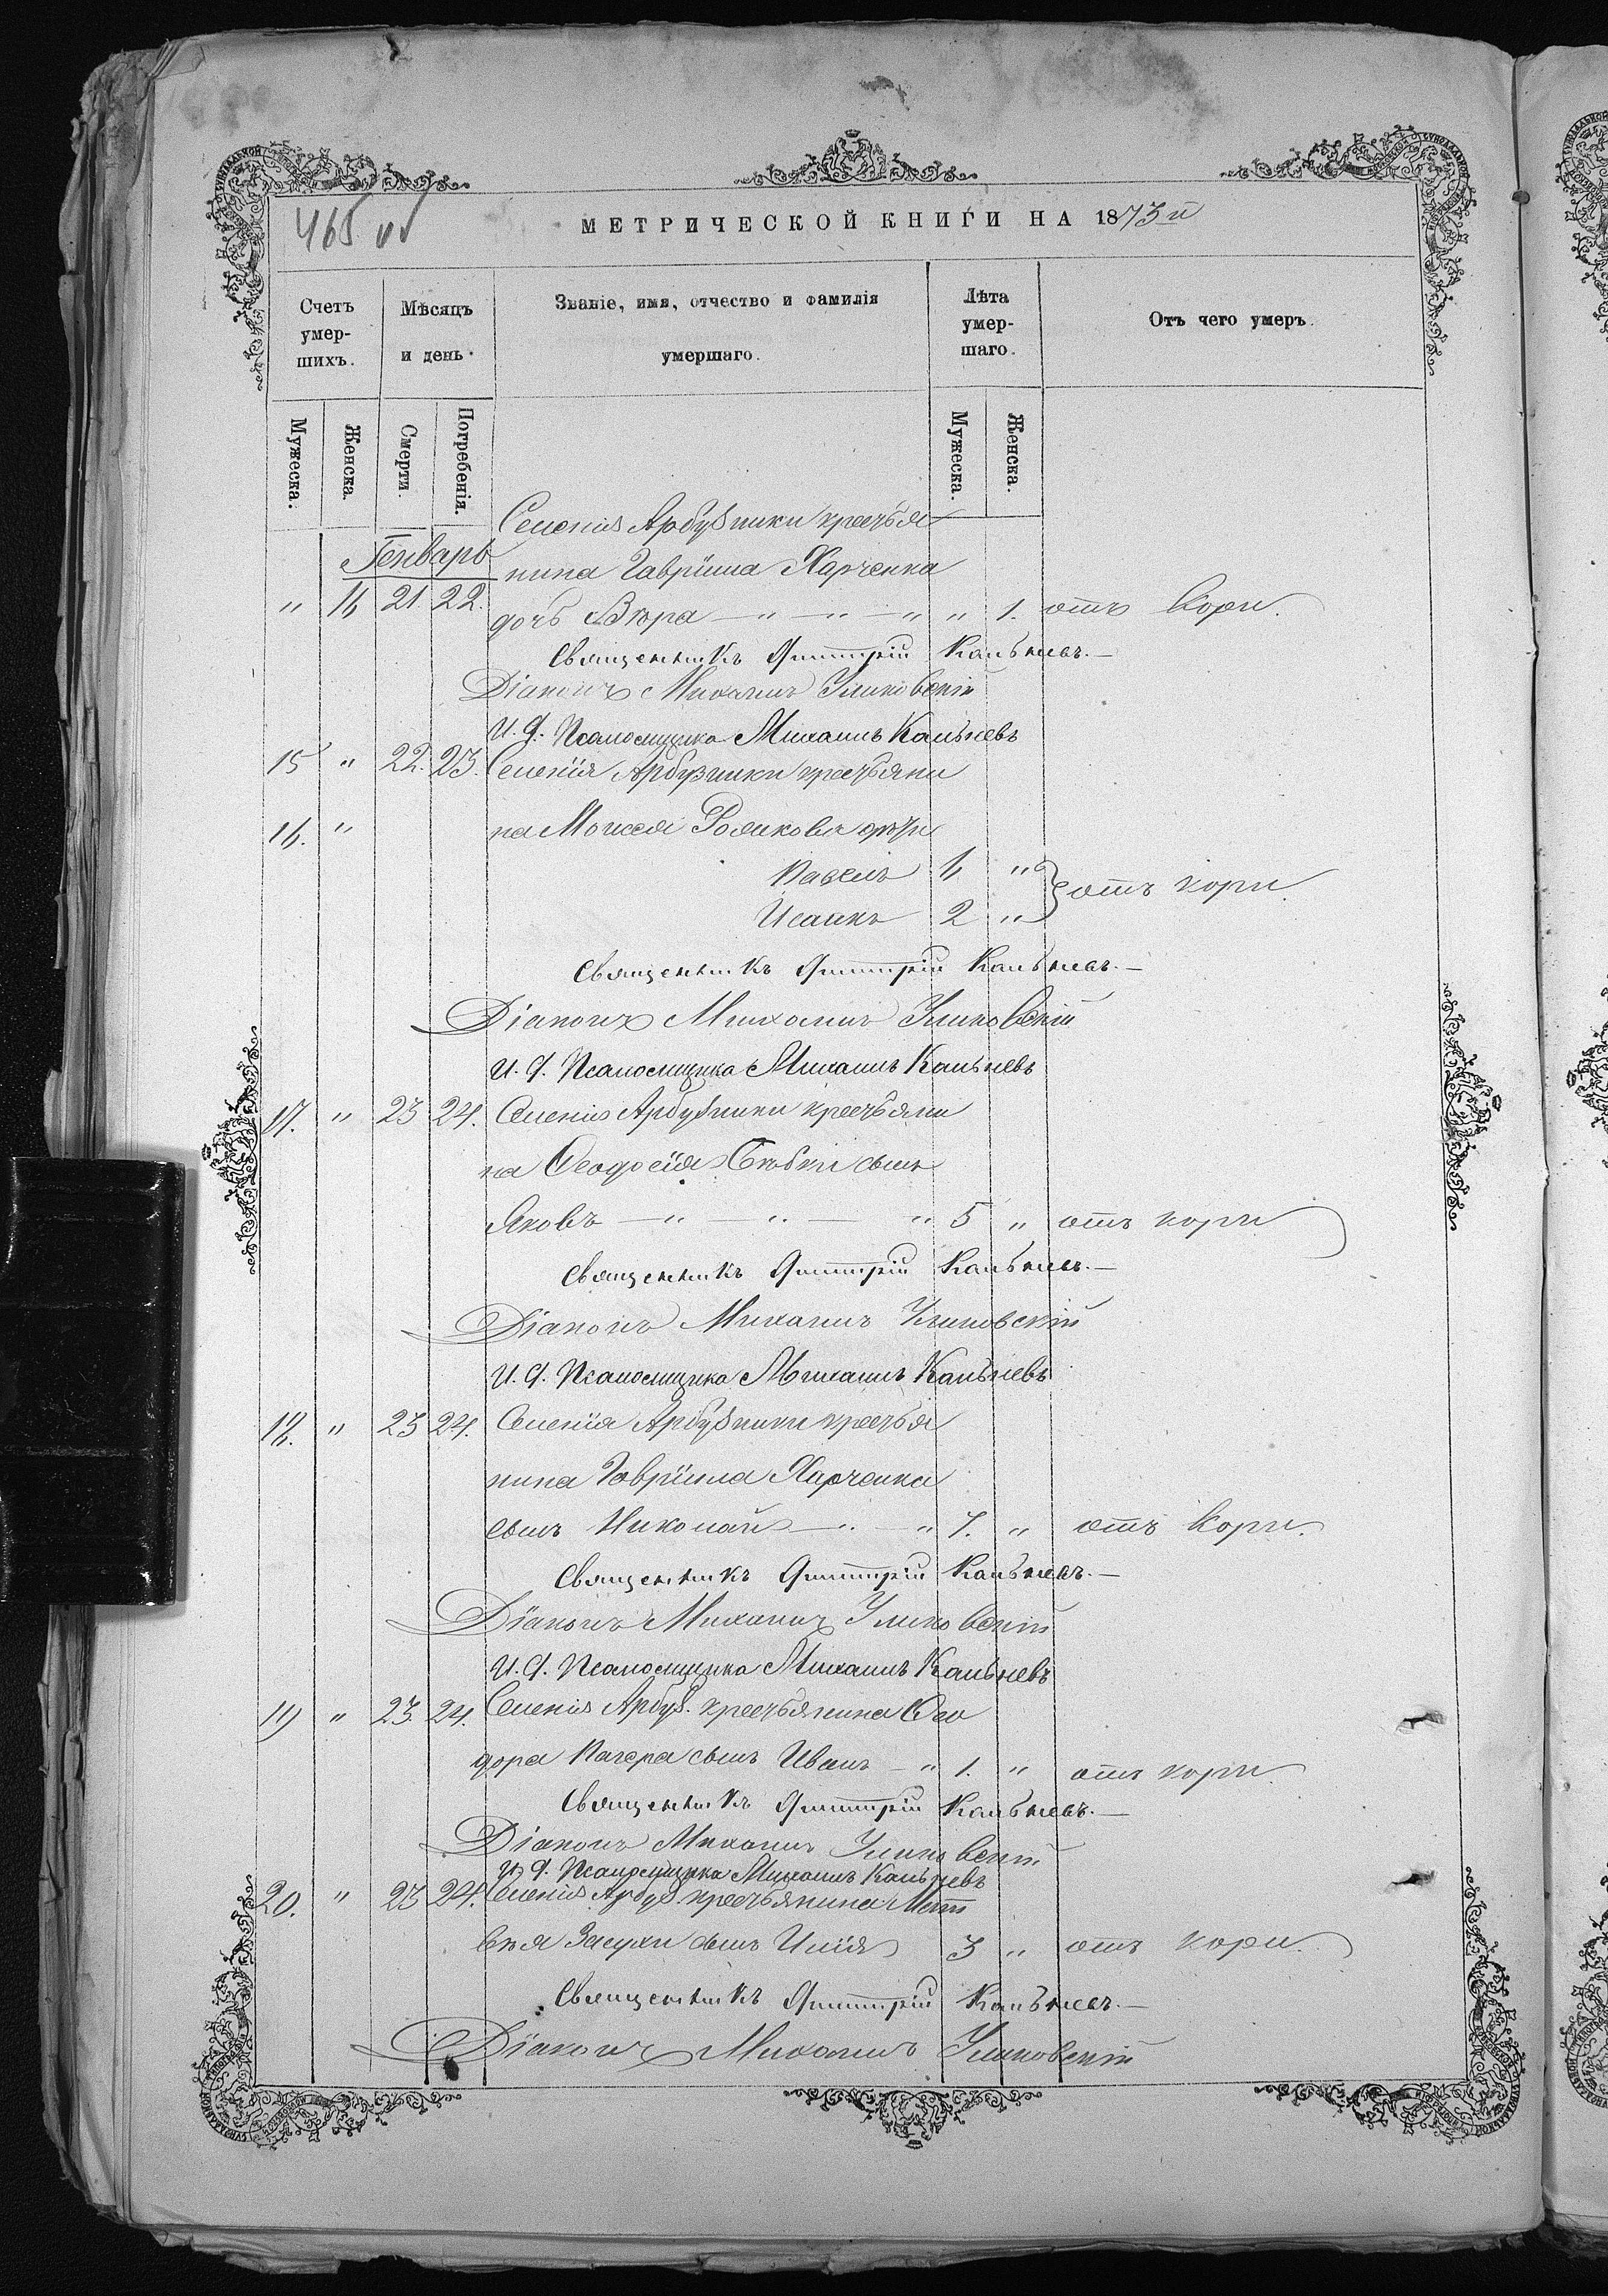 465 об
МЕТРИЧЕСКОЙ КНИГИ НА 1873й
Счетъ умер-шихъ.
Мѣсяцъ и день.
Званіе, имя, отчество и фамилія умершаго.
Лѣта умер-шаго.
Отъ чего умеръ.
Мужеска. Женска. Смерти. Погребенія. Мужеска. Женска.
Генварь
Селенія Арбузинки крестья
нина Гавріила Харченка
" 16 21. 22. дочь Вѣра — " — " — " " 1. отъ кори.
Священникъ Димитрій Кальневъ. —
Діаконъ Михаилъ
И. д. Псаломщика Михаилъ Кальневъ
15 " 22. 23. Селенія Арбузинки крестьяни
16. " на Моисея дѣти
Павелъ 6 "
Исаакъ 2 " } отъ кори
Священникъ Димитрій Кальневъ. —
Діаконъ Михаилъ
И. д. Псаломщика Михаилъ Кальневъ
17. " 23 24. Селенія Арбузинки крестьяни
на Ѳеодосія сынъ
Яковъ — " — " — " 5 " отъ кори
Священникъ Димитрій Кальневъ. —
Діаконъ Михаилъ
И. д. Псаломщика Михаилъ Кальневъ
18. " 23 24. Селенія Арбузинки крестья
нина Гавріила Харченка
сынъ Николай — " — " 7. " отъ кори.
Священникъ Димитрій Кальневъ. —
Діаконъ Михаилъ
И. д. Псаломщика Михаилъ Кальневъ
19 " 23. 24. Селенія Арбуз. крестьянина Ѳео
дора сынъ Иванъ — " 1. " отъ кори.
Священникъ Димитрій Кальневъ. —
Діаконъ Михаилъ
И. д. Псаломщика Михаилъ Кальневъ
20. " 23 24. Селенія Арбуз. крестьянина Мат
вѣя сынъ Илія 3 " отъ кори.
Священникъ Димитрій Кальневъ. —
Діаконъ Михаилъ